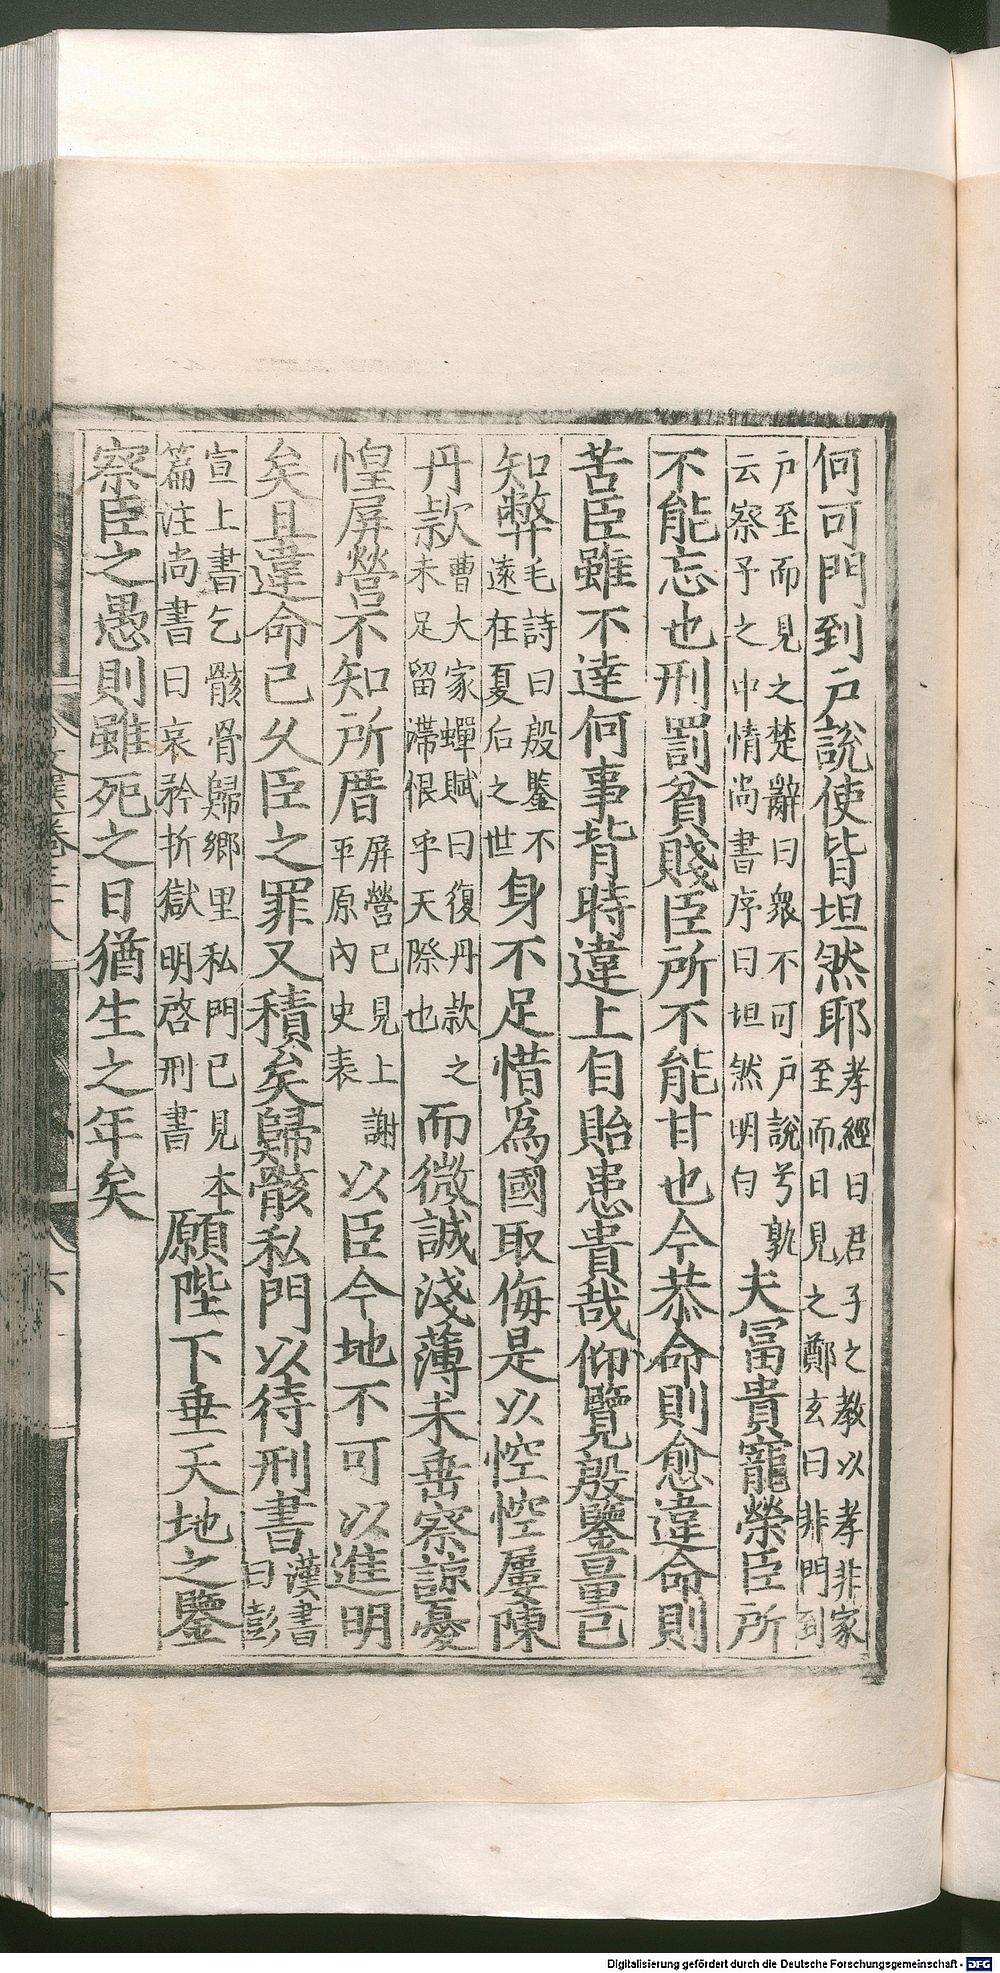 何可門到户說使皆坦然耶孝經曰君子之教以孝非家至而日見之鄭玄曰非門到
户至而見之楚辭曰衆不可户說兮孰云察予之中情尚書序曰坦然明白夫冨貴寵榮臣所
不能忘也刑罰貧賤臣所不能甘也今恭命則愈違命則
苦臣雖不達何事背時違上自貽患責哉仰覽殷鑒量己
知弊毛詩曰殷鑒不遠在夏后之世身不足惜為國取侮是以悾悾屢陳
丹款曹大家蟬賦曰復丹款之未足留滯恨乎天際也而微誠淺薄未垂察諒憂
惶屏營不知所厝屏營已見上謝平原內史表以臣今地不可以進明
矣且違命已久臣之罪又積矣歸骸私門以待刑書漢書曰彭
宣上書乞骸骨歸鄉里私門已見本篇注尚書曰哀矜折獄明啓刑書願陛下垂天地之鑒
察臣之愚則雖死之日猶生之年矣
Digitalisierung gefördert durch die Deutsche Forschungsgemeinschaft - DFG